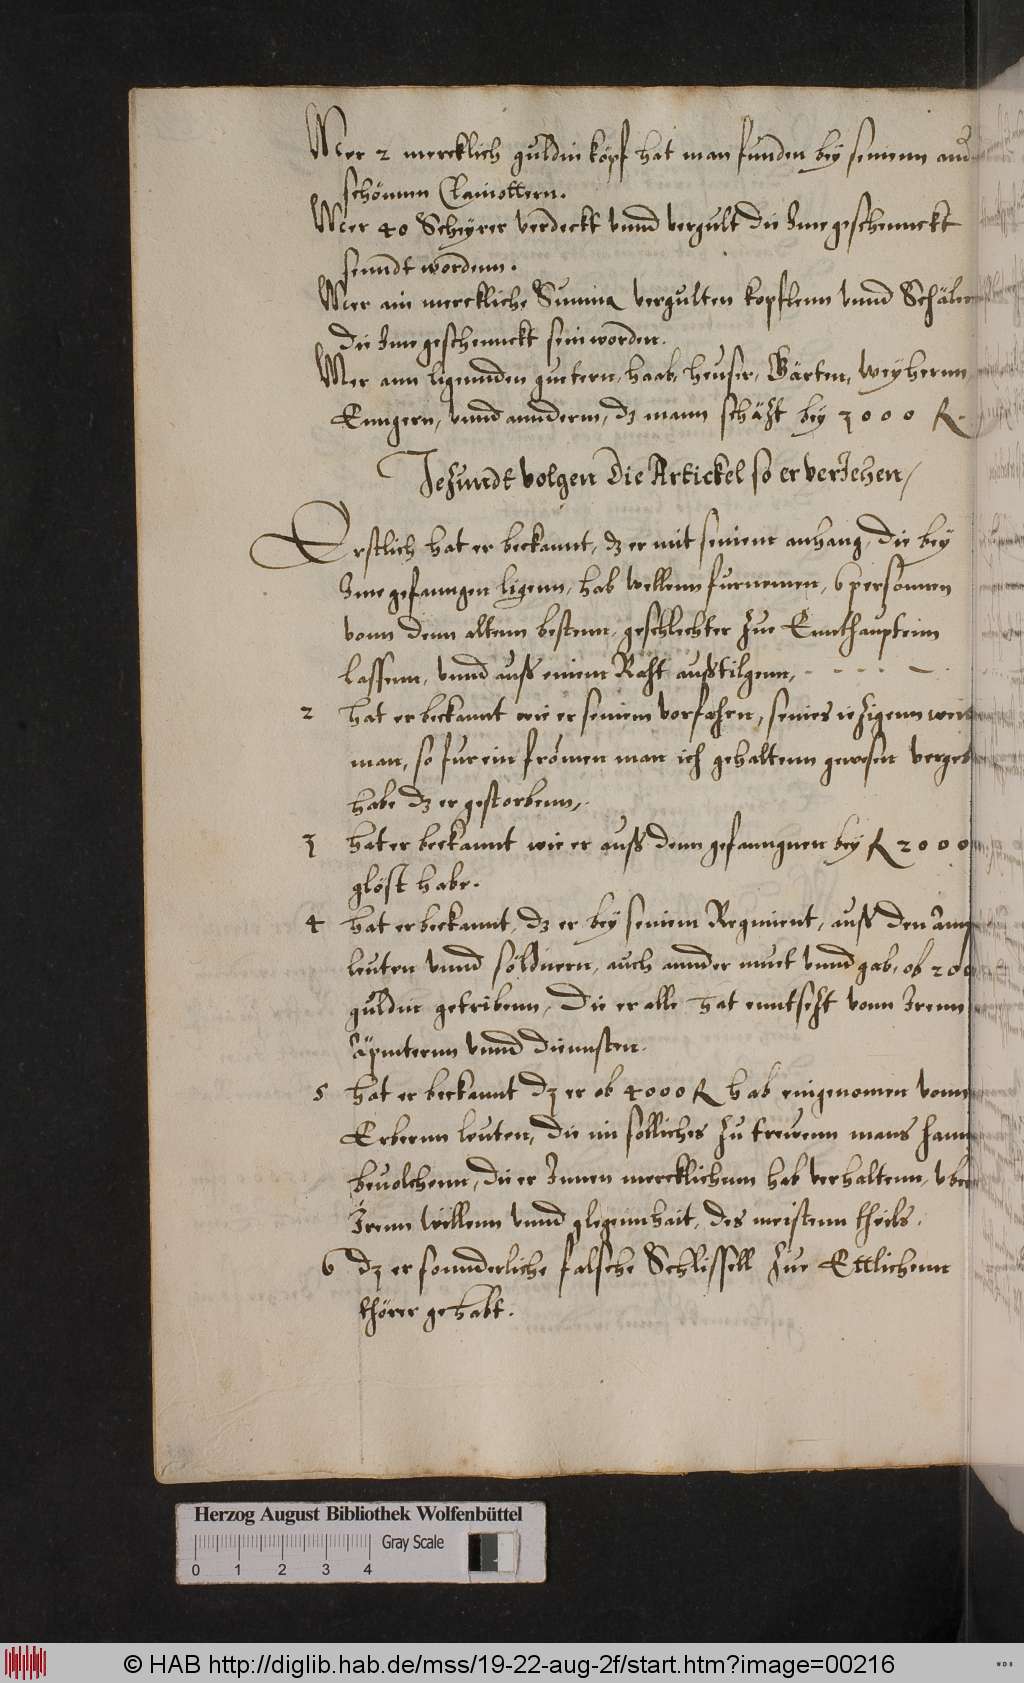 Mer 2 mercklich guldin köpf hat man funden bey seinenn and
schönnen Clainottern.
Mer 40 Scheyrer verdeckt vnnd vergult die Ime geschennckt
senndt wordenn.
Mer ain merckliche Summa vergulten kopflenn vnnd Schälen
die Ime geschennckt sein worden.
Mer ann ligennden guetern, haab, heuser, Gärten, Weyhernn
Enngern, vnnd annderm, dz mann schäzt bey 3000 fl.
Jezundt volgen die Artickel so er verJehen,
Erstlich hat er beckannt, dz er mit seinem anhang, die bey
Ime gefanngen ligenn, hab wellenn furnemen, 6 personnen
vonn denn altenn bestenn geschlechter zue Ennthaupten
lassenn, vnnd auß einem Raht außtilgenn,
2 hat er beckannt wie er seinem vorfahrn, seines iezigenn weibs
man, so fur ein fromen man ich gehaltenn gewesen vergeb
habe dz er gestorbenn,
3 hat er beckannt wie er auß denn gefanngnen bey fl 2000
glöst habe.
4 hat er beckannt, dz er bey seinem Regiment, auß den Amp
leuten vnnd söldnern, auch annder muet vnnd gab, ob 200
guldin getribenn, die er alle hat enntsezt vonn Irenn
Äpmternn vnnd diennsten.
5 hat er beckannt dz er ob 4000 fl hab eingenomen vonn
Erbernn leuten, die im solliches zu trewenn mans hann
beuolchenn, die er Innen mercklichenn hab verhaltenn, vber
Irenn willenn vnnd glegennhait, des meistenn theils.
6 dz er sonnderliche falsche Schlissell zue Ettlichenn
thörer gehabt.
Herzog August Bibliothek Wolfenbüttel
Gray Scale
0 1 2 3 4
© HAB http://diglib.hab.de/mss/19-22-aug-2f/start.htm?image=00216